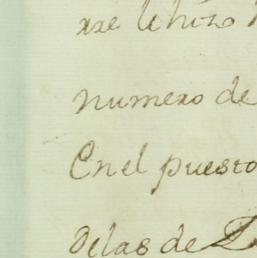 le hizo
numero de
En el puesto
de las de